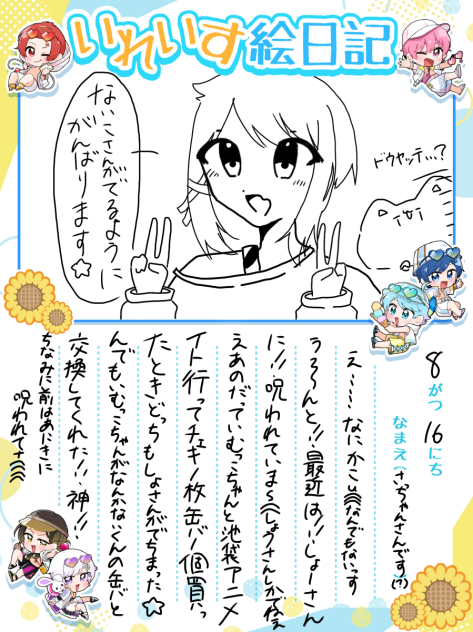 いれいす絵日記
ないこさんがでるように
がんばります☆
ドウヤッテ…?
8がつ16にち
なまえ(さっちゃんさんです(?)
え……なにかこ なんでもないっす
うる〜んと!!最近は!!しょーさん
に!!呪われていま〜
えあのだていむっこちゃんと池袋アニメ
イト行ってチェキ1枚缶バ1個買っ
たときどっちもしょさんがでちまった☆
んでも、むっこちゃんがなんかないくんの缶バと
交換してくれた!!神!!
ちなみに前はあにきに
呪われてた